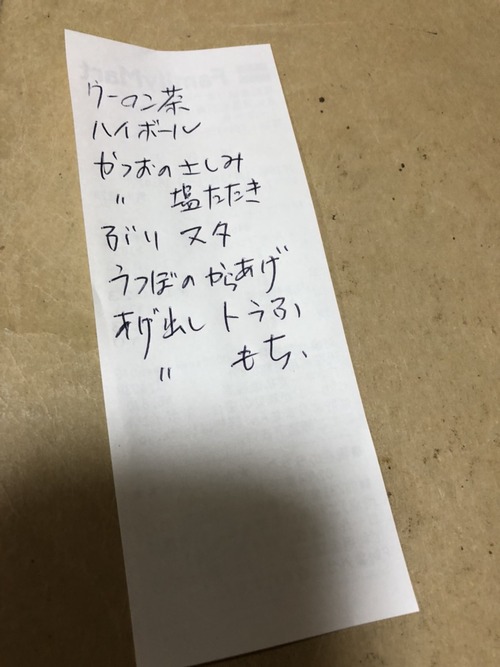 ウーロン茶
ハイボール
かつおのさしみ
〃 塩たたき
ぶり ヌタ
うつぼのからあげ
あげ出し トうふ
〃 もち